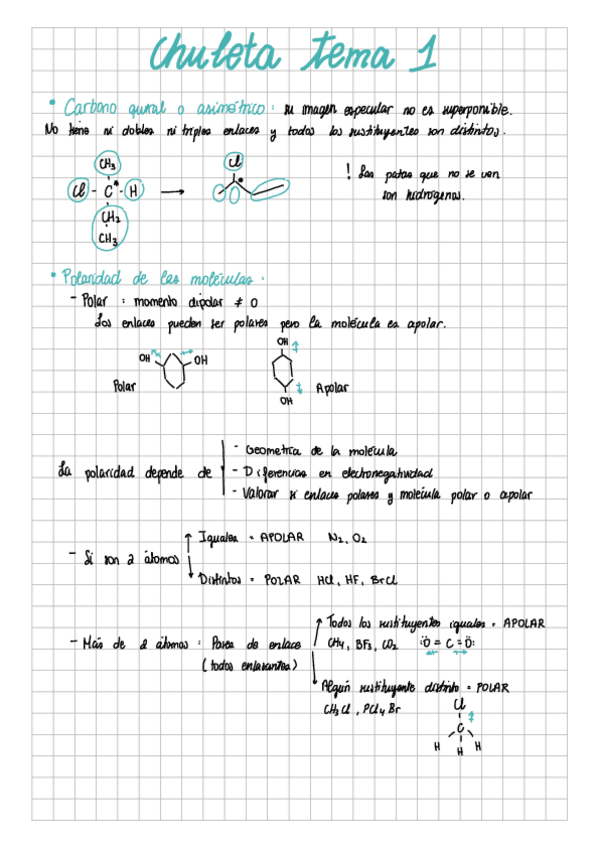 Chuleta tema 1
• Carbono quiral o asimétrico: su imagen especular no es superponible.
No tiene ni dobles ni triples enlaces y todos los sustituyentes son distintos.
CH3
Cl - C* - H
CH2
CH3
Cl
! Las patas que no se ven
son hidrógenos.
• Polaridad de las moléculas:
- Polar: momento dipolar ≠ 0
Los enlaces pueden ser polares pero la molécula es apolar.
OH OH
Polar
OH
OH
Apolar
La polaridad depende de
- Geometría de la molécula
- Diferencias en electronegatividad
- Valorar si enlaces polares y molécula polar o apolar
- Si son 2 átomos
Iguales = APOLAR N2, O2
Distintos = POLAR HCl, HF, BrCl
- Más de 2 átomos: Pares de enlace
(todos enlazantes)
Todos los sustituyentes iguales = APOLAR
CH4, BF3, CO2 :Ö = C = Ö:
Algún sustituyente distinto = POLAR
CH3Cl, PCl4Br
Cl
C
H H H